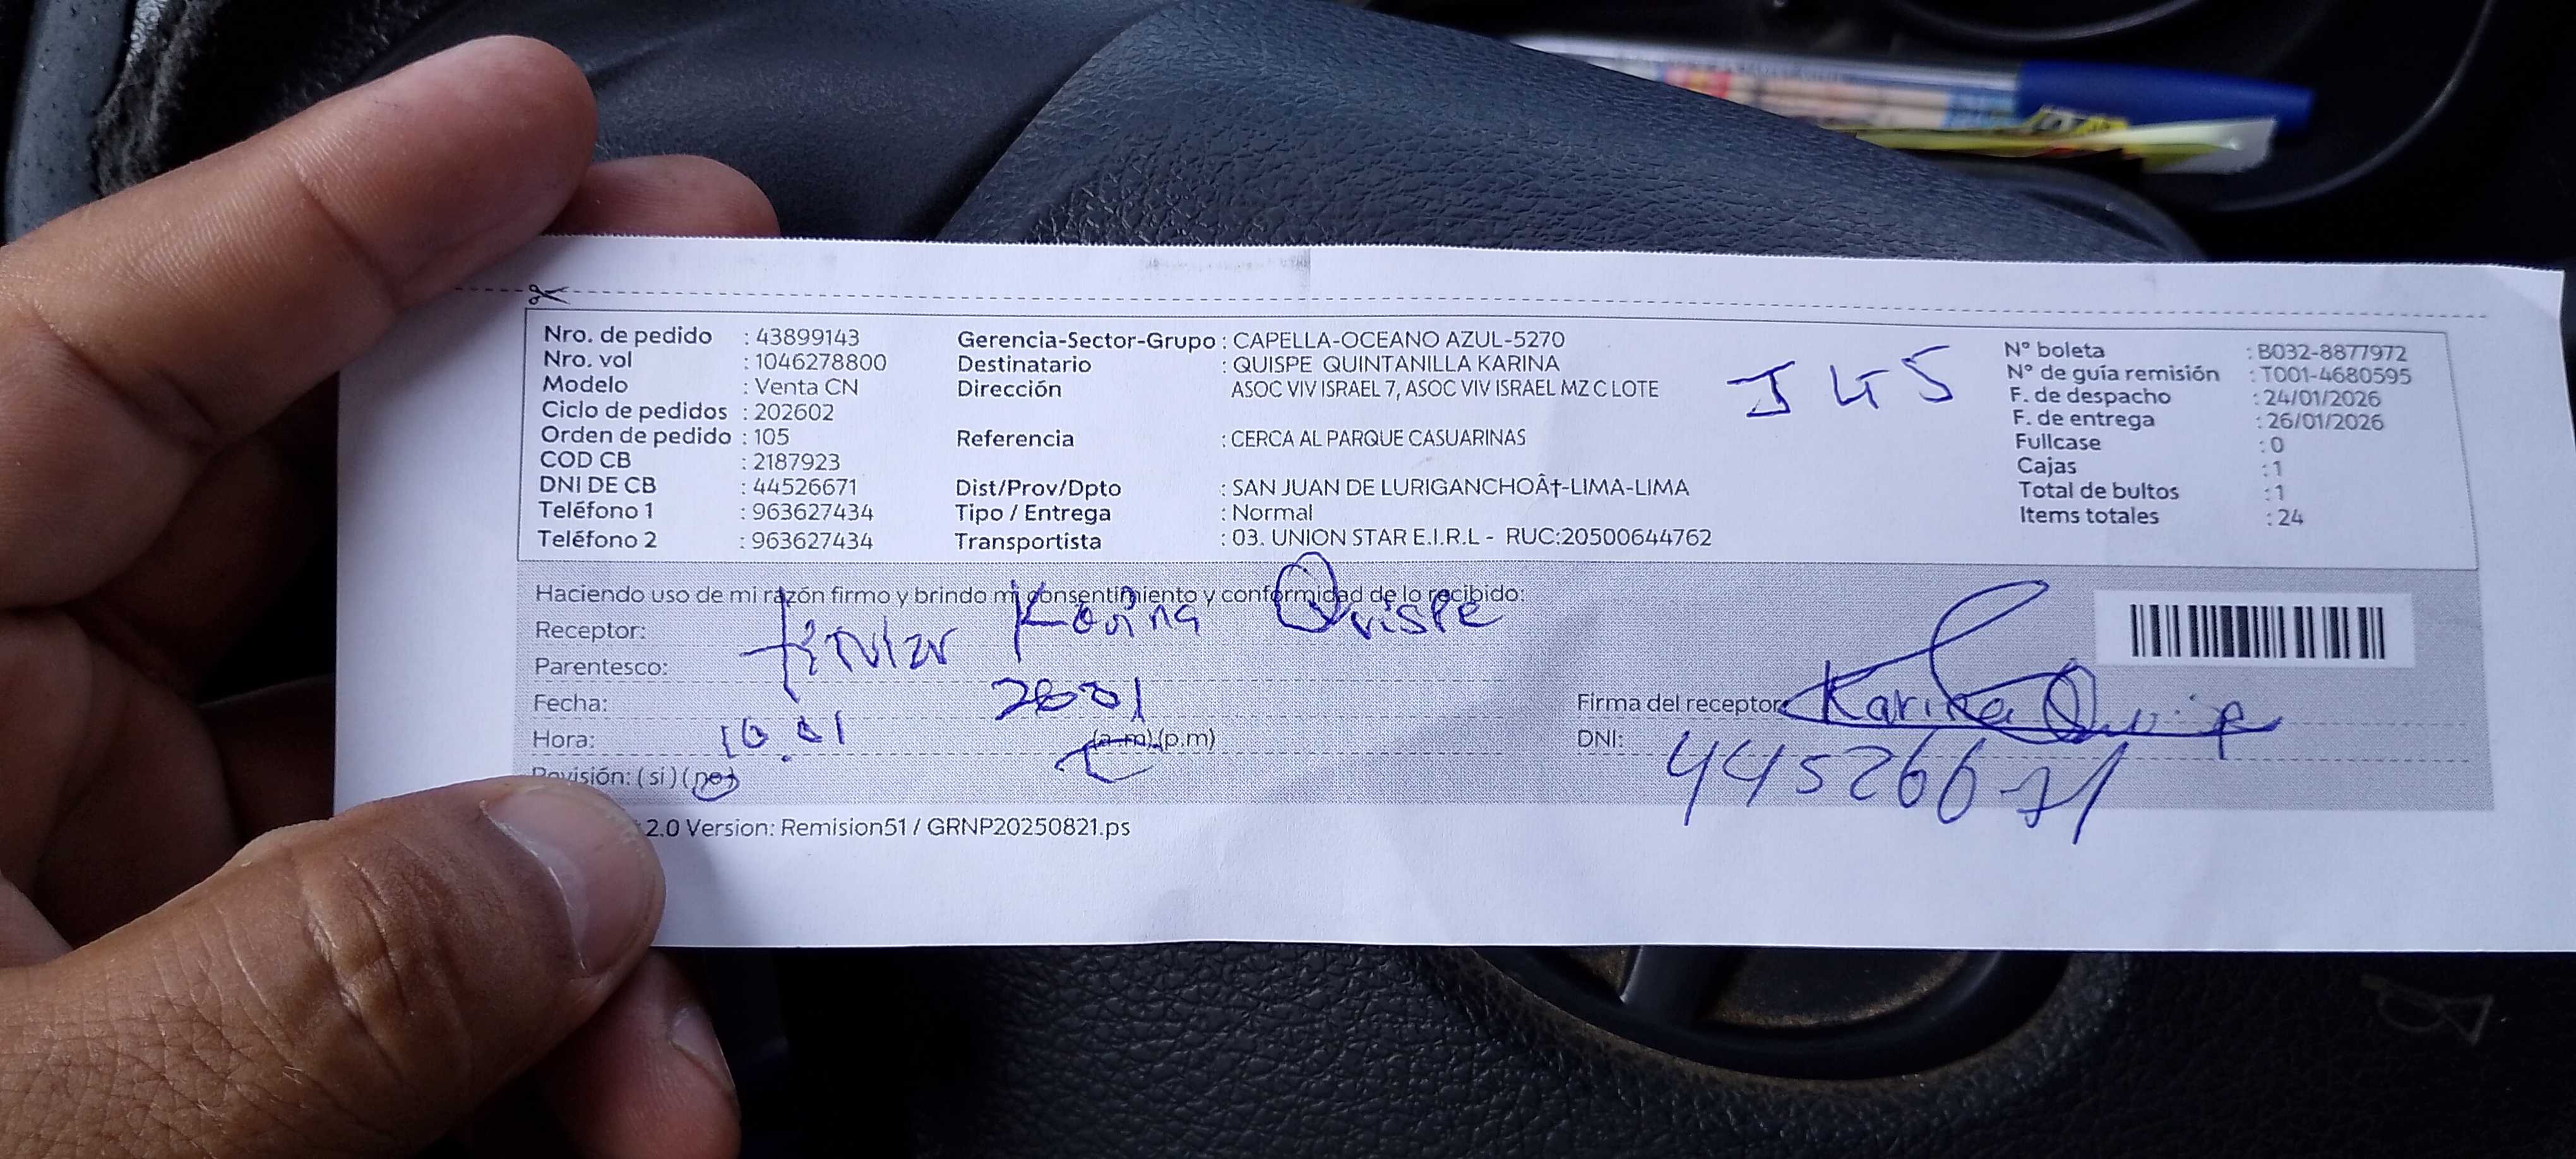 Nro. de pedido : 43899143
Nro. vol : 1046278800
Modelo : Venta CN
Ciclo de pedidos : 202602
Orden de pedido : 105
COD CB : 2187923
DNI DE CB : 44526671
Teléfono 1 : 963627434
Teléfono 2 : 963627434
Gerencia-Sector-Grupo : CAPELLA-OCEANO AZUL-5270
Destinatario : QUISPE QUINTANILLA KARINA
Dirección ASOC VIV ISRAEL 7, ASOC VIV ISRAEL MZ C LOTE
Referencia : CERCA AL PARQUE CASUARINAS
Dist/Prov/Dpto : SAN JUAN DE LURIGANCHOÂ†-LIMA-LIMA
Tipo / Entrega : Normal
Transportista : 03. UNION STAR E.I.R.L - RUC:20500644762
N° boleta : B032-8877972
N° de guía remisión : T001-4680595
F. de despacho : 24/01/2026
F. de entrega : 26/01/2026
Fullcase : 0
Cajas : 1
Total de bultos : 1
Items totales : 24
Haciendo uso de mi razón firmo y brindo mi consentimiento y conformidad de lo recibido:
Receptor: Karina Quispe
Parentesco: titular
Fecha:
Hora: (a.m) (p.m)
Revisión: (si) (no)
Firma del receptor: Karina Quispe
DNI: 44526671
2.0 Version: Remision51 / GRNP20250821.ps